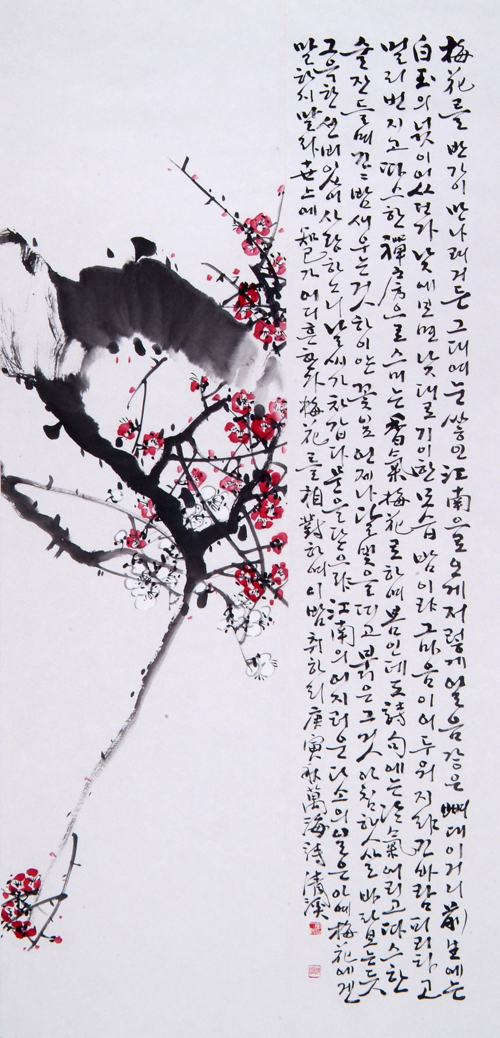 梅花를 반가이 만나려거든 그대여 눈 쌓인 江南으로 오게 저렇게 얼음같은 뼈대이거니 前生에는
白玉의 넋이었던가 낮에 보면 낮대로 기이한 모습 밤이라 그 마음이 어두워지랴 긴 바람 피리타고
멀리 번지고 따스한 禪房으로 스미는 香氣 梅花로 하여 봄인데도 詩句에는 冷氣어리고 따스한
술잔 들며 긴긴 밤새우는 것 하이얀 꽃잎 언제나 달빛을 띠고 붉은 그것 아침햇살 바라보는 듯
그윽한 선비있어 사랑하노니 날씨가 차갑다 문을 닫으랴 江南의 어지러운 다소의 일은 아예 梅花에겐
말하지 말라 世上에 知己가 어디 흔한가 梅花를 相對하여 이밤 취하리 庚寅秋 萬海詩